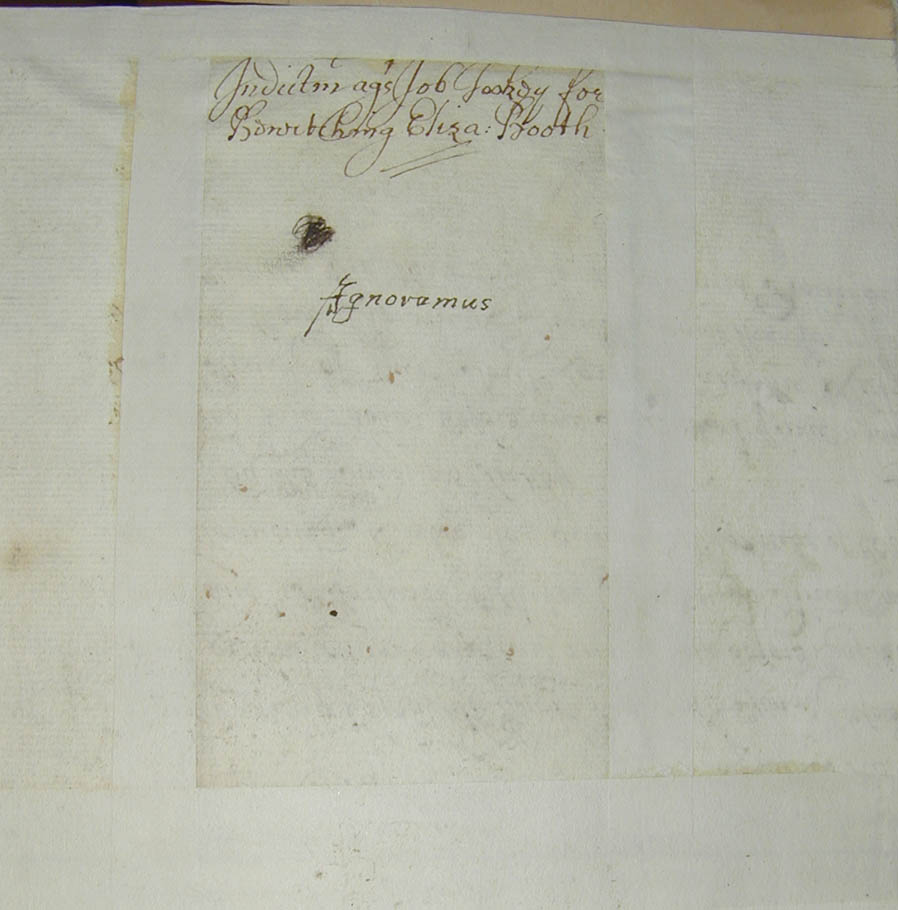 Indictmt agst Job Tookey for
Bewitching Eliza: Booth
Ignoramus